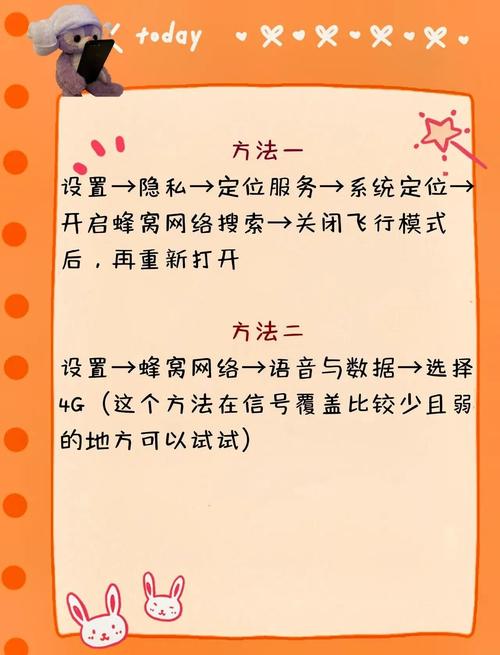 today
方法一
设置→隐私→定位服务→系统定位→
开启蜂窝网络搜索→关闭飞行模式
后，再重新打开
方法二
设置→蜂窝网络→语音与数据→选择
4G（这个方法在信号覆盖比较少且弱
的地方可以试试）